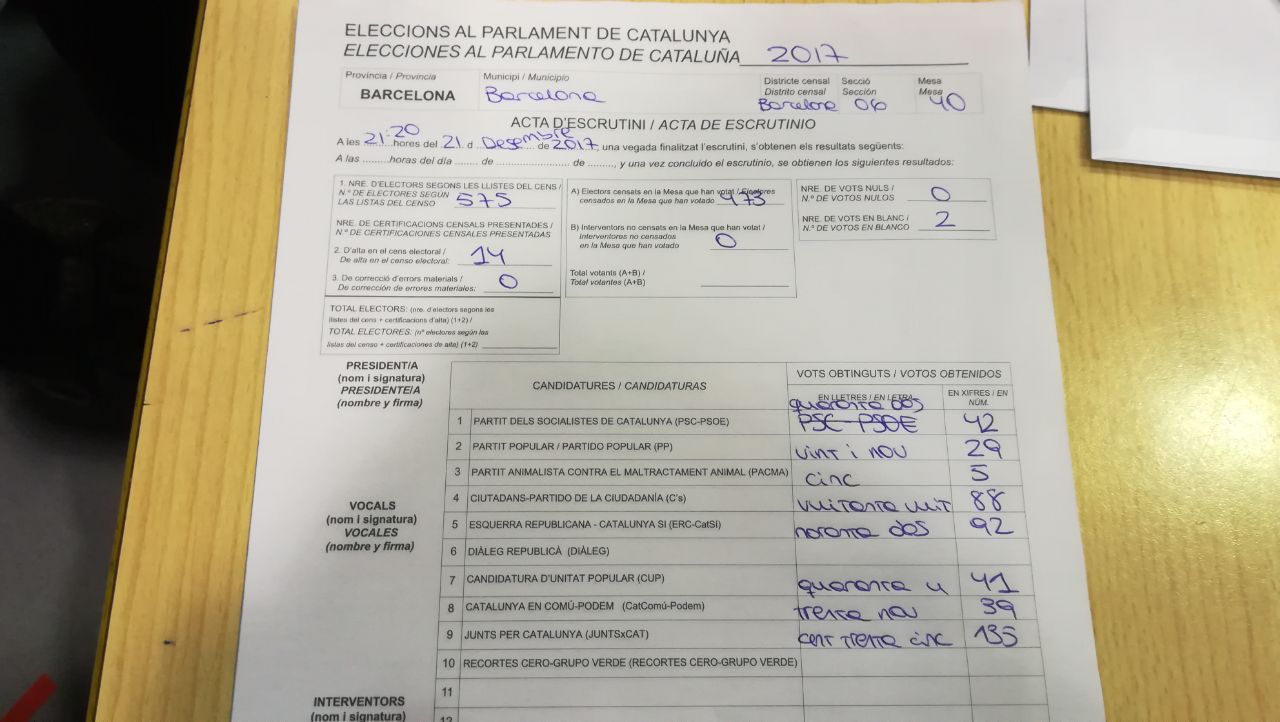 ELECCIONS AL PARLAMENT DE CATALUNYA
ELECCIONES AL PARLAMENTO DE CATALUÑA 2017
Província / Provincia
BARCELONA
Municipi / Municipio
Barcelona
Districte censal
Distrito censal
Barcelona
Secció
Sección
06
Mesa
Mesa
40
ACTA D'ESCRUTINI / ACTA DE ESCRUTINIO
A les 21:20 hores del 21 d Desembre de 2017, una vegada finalitzat l'escrutini, s'obtenen els resultats següents:
A las .........horas del día ....... de ...................... de ........, y una vez concluido el escrutinio, se obtienen los siguientes resultados:
1. NRE. D'ELECTORS SEGONS LES LLISTES DEL CENS /
N.º DE ELECTORES SEGÚN
LAS LISTAS DEL CENSO 575
NRE. DE CERTIFICACIONS CENSALS PRESENTADES /
N.º DE CERTIFICACIONES CENSALES PRESENTADAS
2. D'alta en el cens electoral /
De alta en el censo electoral: 14
3. De correcció d'errors materials /
De corrección de errores materiales: 0
TOTAL ELECTORS: (nre. d'electors segons les
llistes del cens + certificacions d'alta) (1+2) /
TOTAL ELECTORES: (nº electores según las
listas del censo + certificaciones de alta) (1+2)
A) Electors censats en la Mesa que han votat / Electores
censados en la Mesa que han votado 473
B) Interventors no censats en la Mesa que han votat /
Interventores no censados
en la Mesa que han votado 0
Total votants (A+B) /
Total votantes (A+B)
NRE. DE VOTS NULS /
N.º DE VOTOS NULOS 0
NRE. DE VOTS EN BLANC /
N.º DE VOTOS EN BLANCO 2
PRESIDENT/A
(nom i signatura)
PRESIDENTE/A
(nombre y firma)
VOCALS
(nom i signatura)
VOCALES
(nombre y firma)
INTERVENTORS
(nom i signatura)
CANDIDATURES / CANDIDATURAS
VOTS OBTINGUTS / VOTOS OBTENIDOS
EN LLETRES / EN LETRA
EN XIFRES / EN
NÚM.
quaranta dos
1 PARTIT DELS SOCIALISTES DE CATALUNYA (PSC-PSOE) PSC-PSOE 42
2 PARTIT POPULAR / PARTIDO POPULAR (PP) vint i nou 29
3 PARTIT ANIMALISTA CONTRA EL MALTRACTAMENT ANIMAL (PACMA) cinc 5
4 CIUTADANS-PARTIDO DE LA CIUDADANÍA (C's) vuitanta vuit 88
5 ESQUERRA REPUBLICANA - CATALUNYA SI (ERC-CatSí) noranta dos 92
6 DIÀLEG REPUBLICÀ (DIÀLEG)
7 CANDIDATURA D'UNITAT POPULAR (CUP) quaranta u 41
8 CATALUNYA EN COMÚ-PODEM (CatComú-Podem) trenta nou 39
9 JUNTS PER CATALUNYA (JUNTSxCAT) cent trenta cinc 135
10 RECORTES CERO-GRUPO VERDE (RECORTES CERO-GRUPO VERDE)
11
12